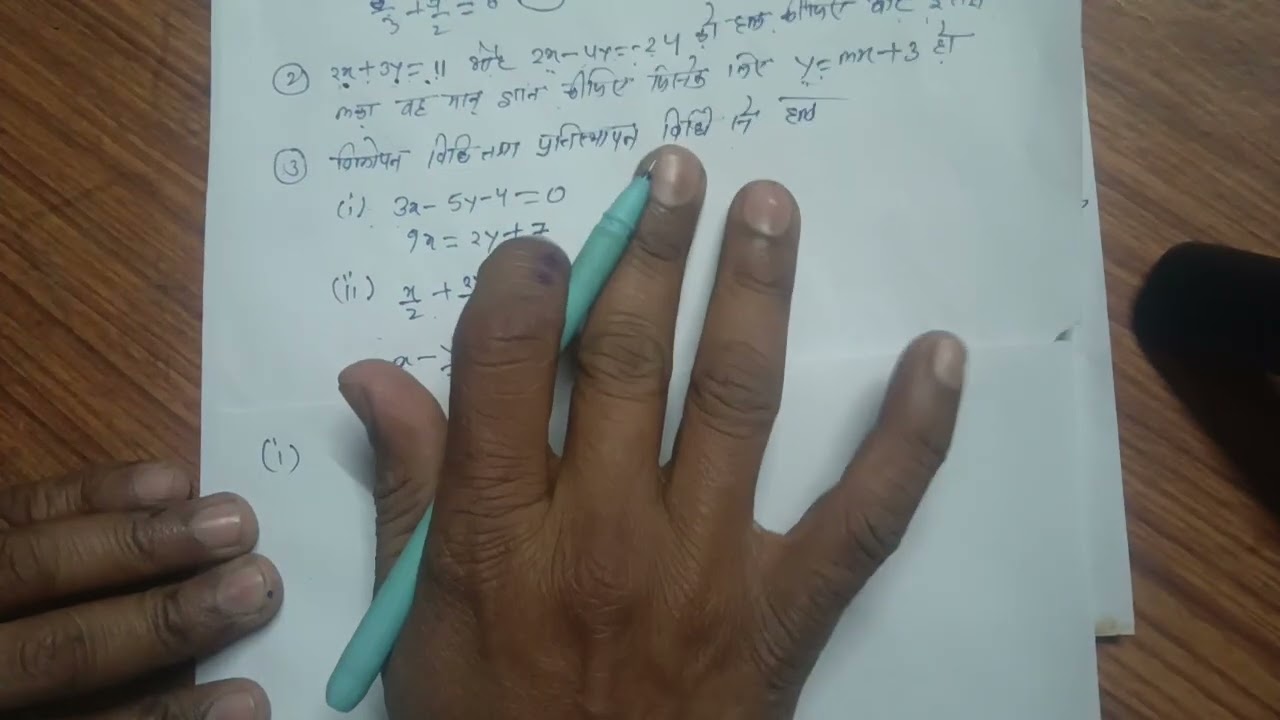 3 + 2 =
② 2x + 3y = 11 और 2x - 4y = -24 को हल कीजिए
वह मान ज्ञात कीजिए जिसके लिए y = mx + 3 हो
③ विलोपन विधि तथा प्रतिस्थापन विधि से हल
(i) 3x - 5y - 4 = 0
9x = 2y + 7
(ii) x/2 +
x -
(i)